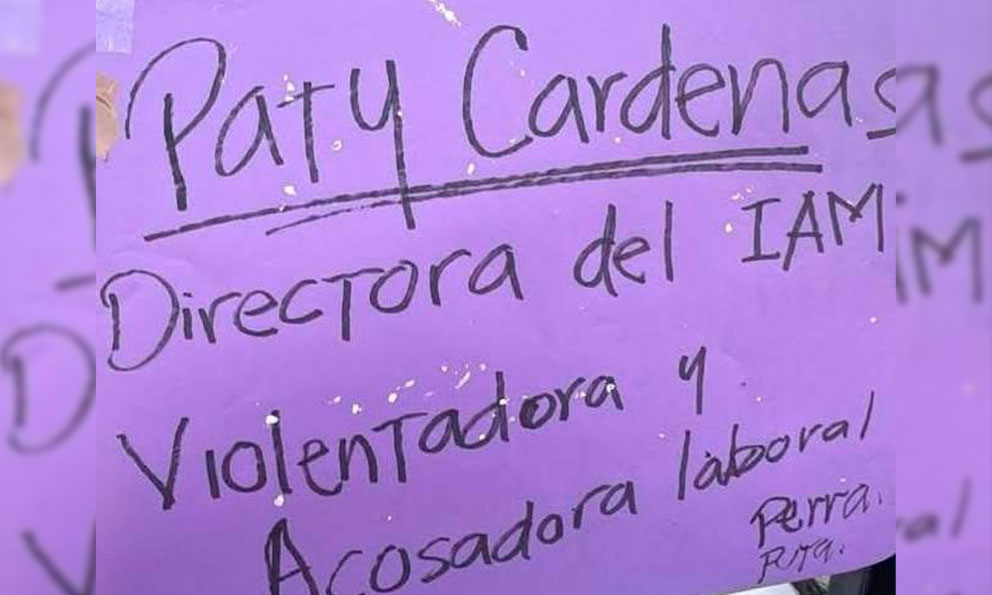 Paty Cardenas
Directora del IAM
Violentadora y
Acosadora laboral
Perra.
Puta.